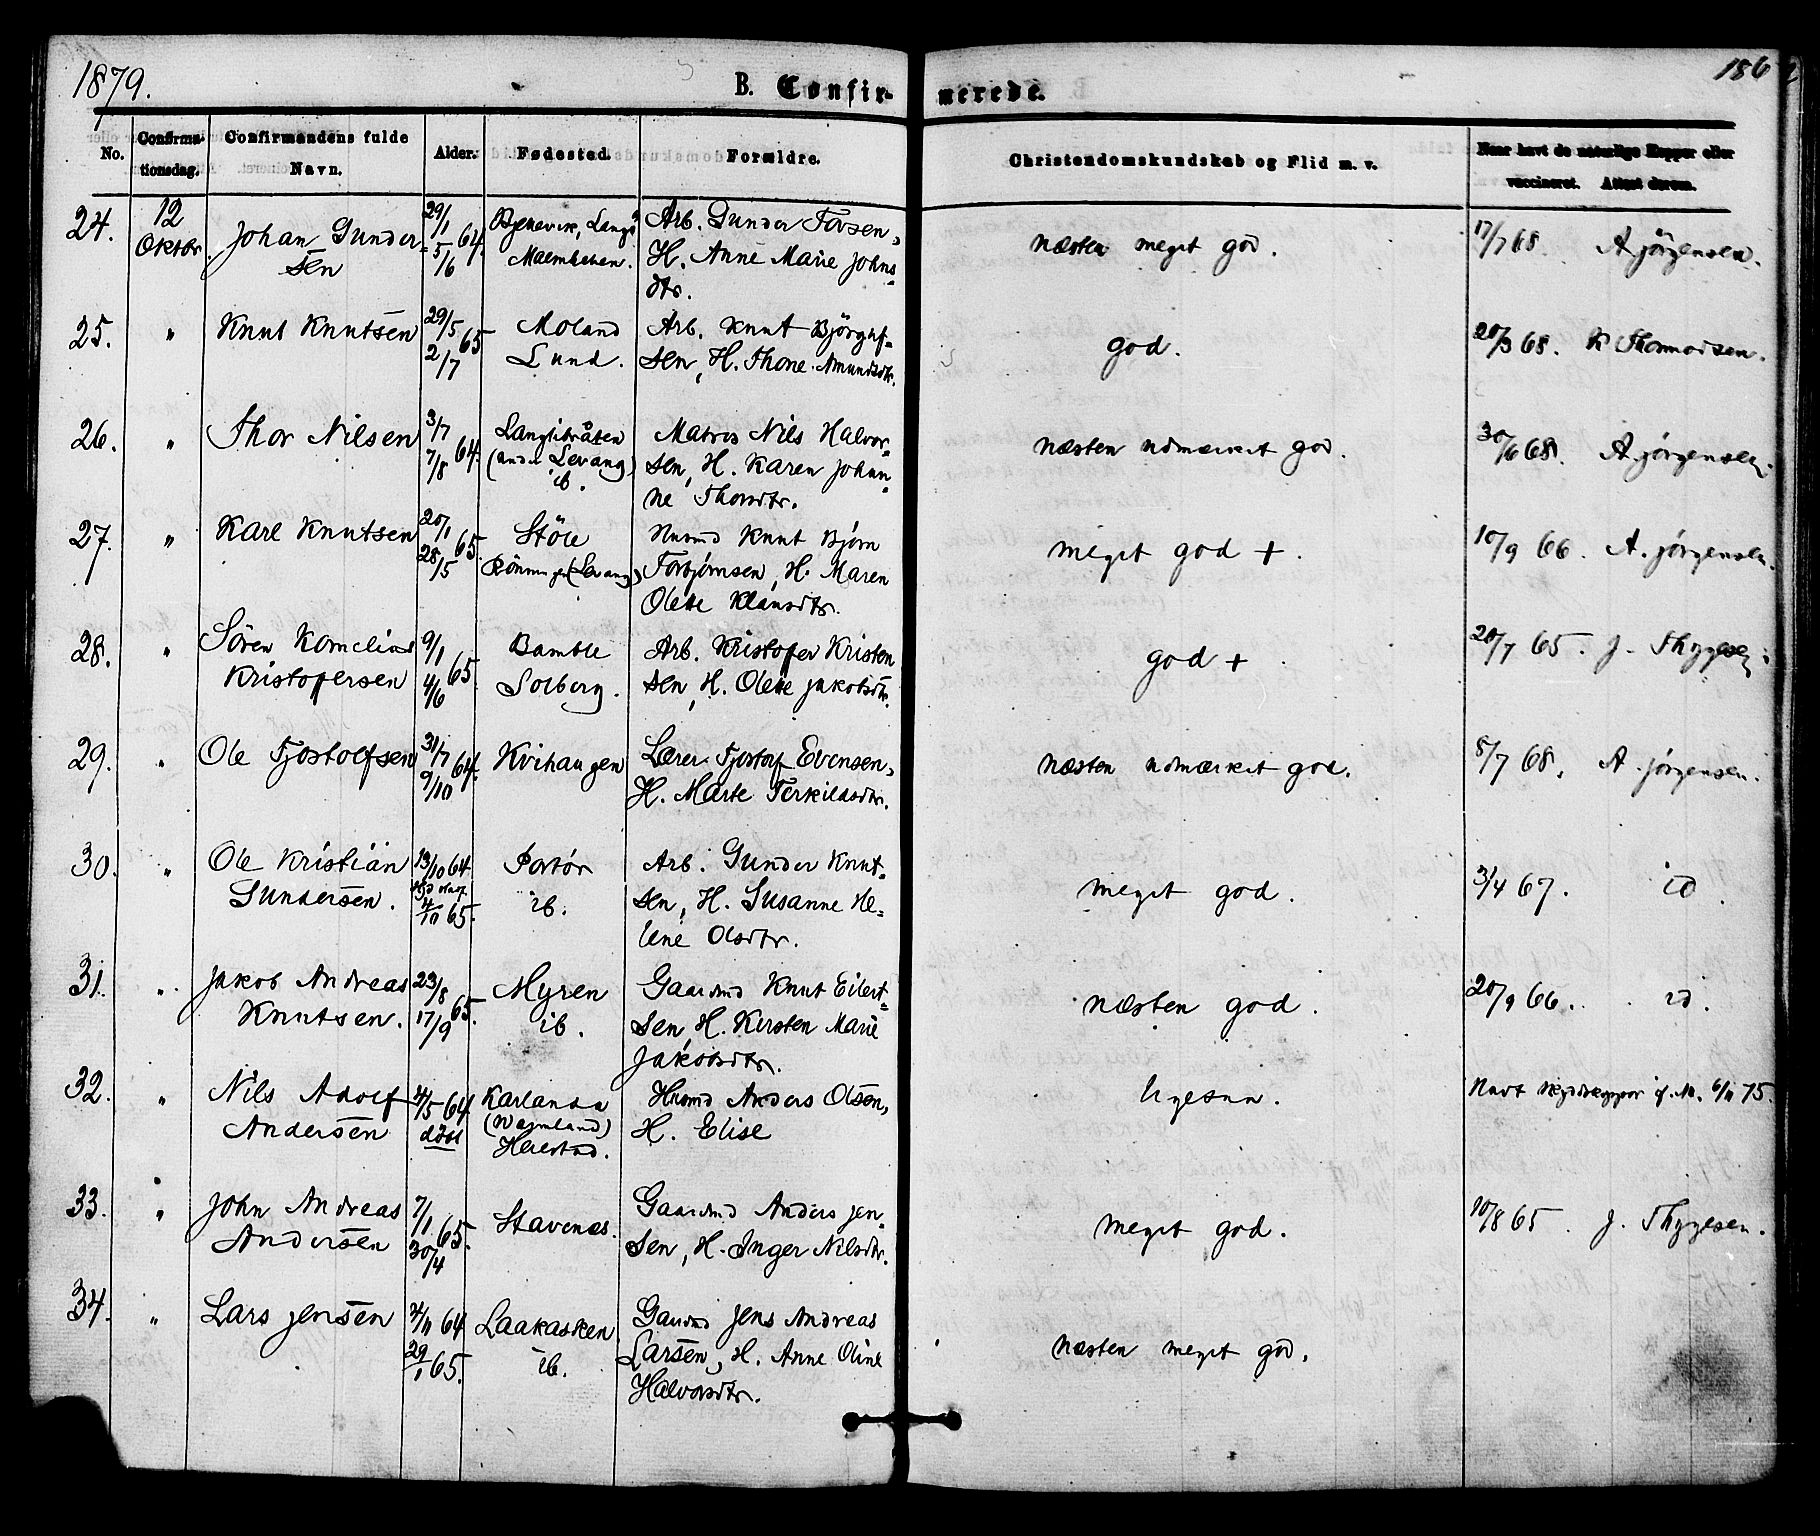 1879.
B. Confirmerede.
186
No.
Confirmationsdag.
Confirmandens fulde Navn.
Alder.
Fødested.
Forældre.
Christendomskundskab og Flid m. v.
Naar havt de naturlige Kopper eller vaccineret. Attest derom.
24. 12 Oktbr. Johan Gundersen 29/1 64. 5/6
Arb. Gunder Torsen,
H. Anne Marie Johnsdtr.
næsten meget god. 17/7 68 A Jörgensen.
25. " Knut Knutsen 29/5 65 2/7 Moland
Lund.
Arb. Knut Björgufsen, H. Thone Amundsdtr.
god. 20/3 68. K Thormodsen.
26. " Thor Nilsen 3/7 64. 7/8
(under Levang)
ib.
Matros Nils Halvorsen, H. Karen Johanne Thorsdtr.
næsten udmærket god. 30/6 68. A Jörgensen
27. " Karl Knutsen 20/1 65. 28/5 Stöle
(Levang)
Husmd Knut Bjørn
Torbjørnsen, H. Maren
Olette Klausdtr.
meget god +. 10/9 66. A. Jörgensen.
28. " Sören Kornelius
Kristofersen 9/1 65. 4/6 Bamble
Solberg.
Arb. Kristofer Kristensen, H. Olette Jakobsdtr.
god + 20/7 65. J. Thygesen
29. " Ole Fjostolfsen 31/7 64. 9/10 Kvihaugen
Lærer Fjostolf Evensen,
H. Marte Terkildsdtr.
næsten udmærket god. 8/7 68. A. Jörgensen.
30. " Ole Kristian
Gundersen. 13/10 64 65. Portör
ib.
Arb. Gunder Knutsen, H. Susanne Helene Olsdtr.
meget god. 3/4 67. id.
31. " Jakob Andreas
Knutsen. 23/8 65. 17/9 Myren
ib.
Gaardmd Knut Eilertsen, H. Kirsten Marie
Jakobsdtr.
næsten god. 20/9 66. id.
32. " Nils Adolf
Andersen 4/5 64. döbt Karlanda
(Wermland)
Helestad.
Husmd Anders Olsen,
H. Elise
ligesaa. Havt 6/11 75.
33. " John Andreas
Andersen 7/1 65. 30/4 Stavenæs.
Gaardmd Anders Jensen, H. Inger Nilsdtr.
meget god. 10/8 65. J. Thygesen.
34. " Lars Jensen 4/11 64 29/1 65. Laakasken
ib.
Gaardmd Jens Andreas
Larsen, H. Anne Oline
Halvorsdtr.
næsten meget god.